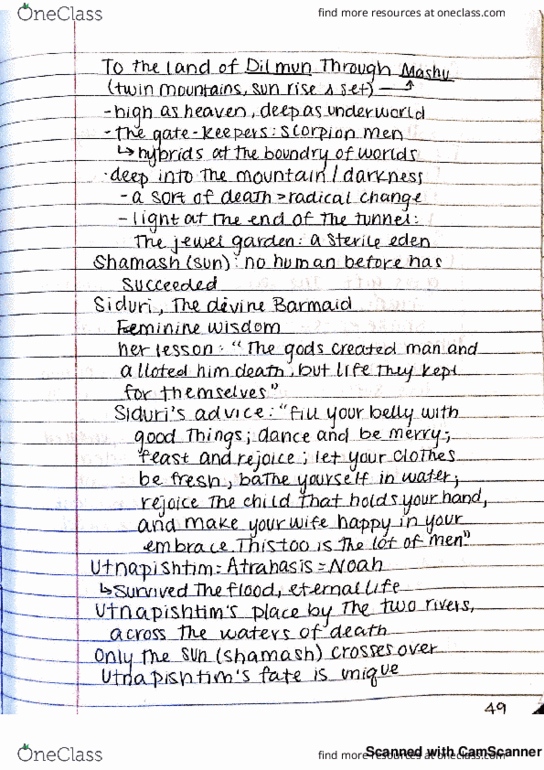 OneClass
find more resources at oneclass.com
To the land of Dilmun Through Mashu
(twin mountains, sun rise & set)
-high as heaven, deep as underworld
-the gate-keepers: scorpion men
↳hybrids at the boundry of worlds
·deep into the mountain/darkness
-a sort of death > radical change
-light at the end of the tunnel:
The jewel garden: a sterile eden
Shamash (sun): no human before has
succeeded
Siduri, The divine Barmaid
Feminine wisdom
her lesson: "The gods created man and
alloted him death, but life they kept
for themselves"
Siduri's advice: "fill your belly with
good Things; dance and be merry;
feast and rejoice; let your clothes
be fresh, bathe yourself in water;
rejoice The child That holds your hand,
and make your wife happy in your
embrace. This too is The lot of men"
Utnapishtim = Atrahasis = Noah
↳survived The flood, eternal life
Utnapishtim's place by The two rivers,
across The waters of death
Only The sun (shamash) crosses over
Utnapishtim's fate is unique
49
OneClass
find more resources at oneclass.com
Scanned with CamScanner